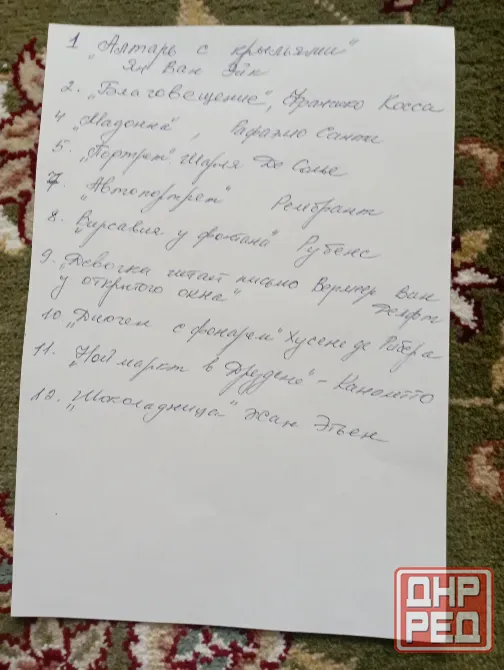 1 "Алтарь с крыльями"
Ян Ван Эйк
2. "Благовещение", Франсико Косса
4 "Мадонна", Рафаэлю Санти
5. "Портрет" Шарля Де Солье
7. "Автопортрет" Рембрант
8. "Вирсавия у фонтана" Рубенс
9. "Девочка читает письмо Вермеер Ван
у открытого окна" Делфт
10 "Диоген с фонарем" Хусепе де Рибера
11. "Ноймаркт в Дрездене" - Каналетто
12. "Шоколадница" Жан Этьен
ДНР
РЕД